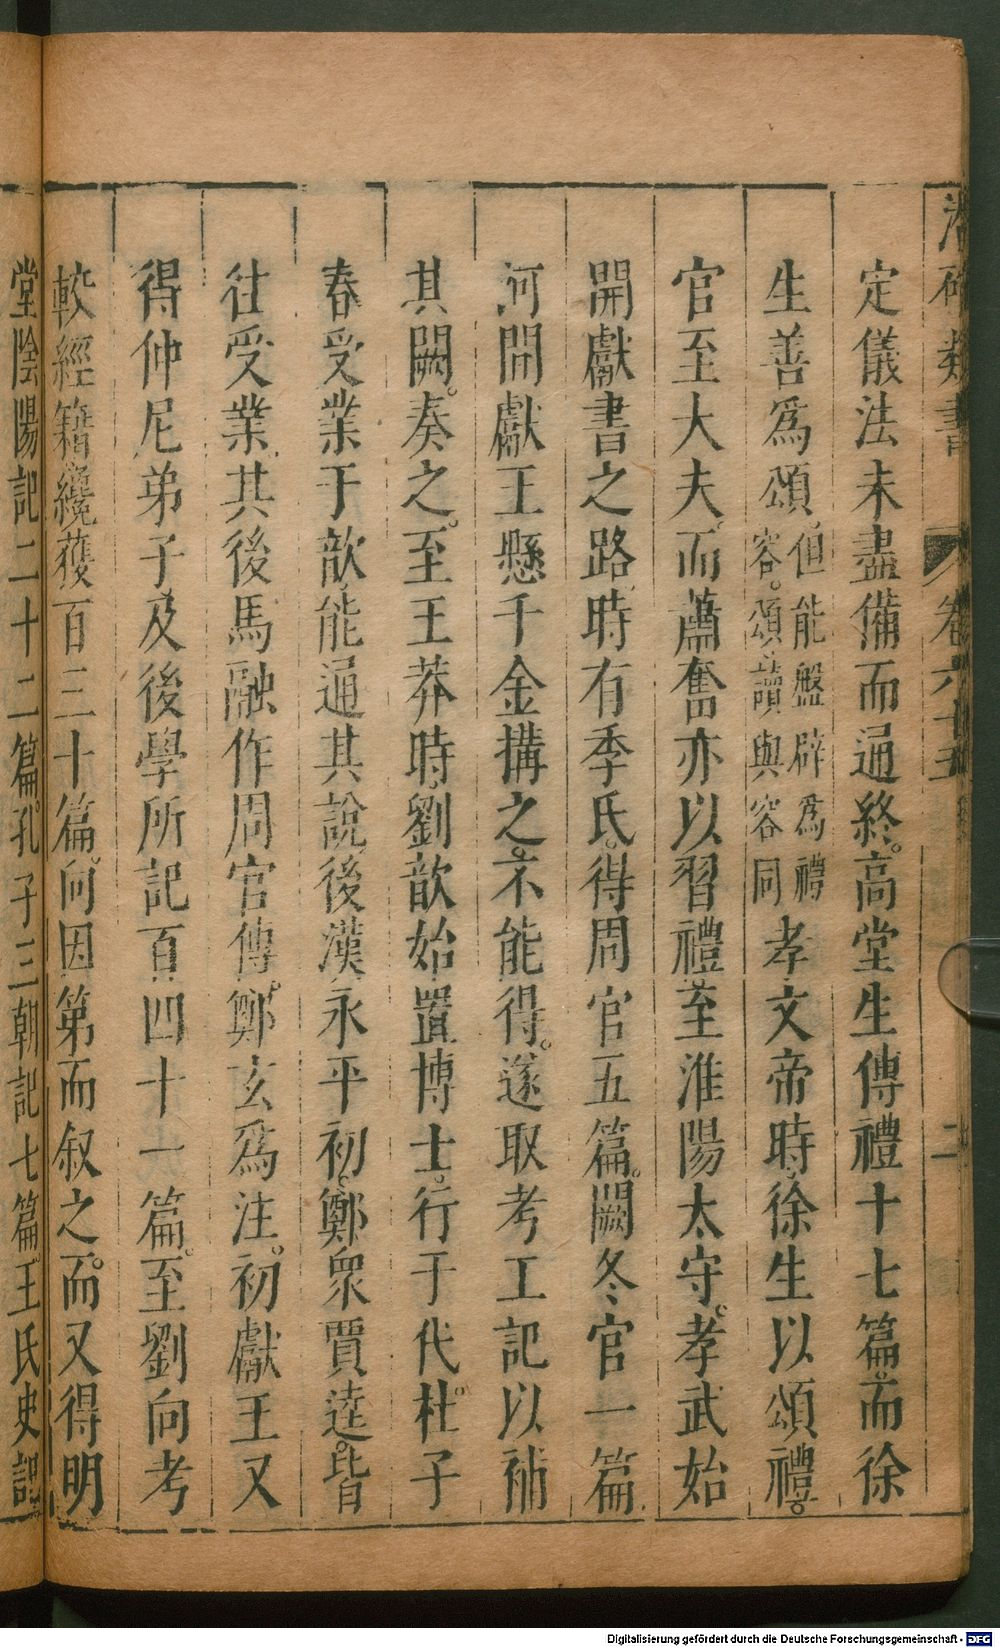 類書
卷六十五
二
定儀法未盡備而通終。高堂生傳禮十七篇。而徐
生善為頌。但能盤辟為禮容。頌讀與容同孝文帝時。徐生以頌禮。
官至大夫。而蕭奮亦以習禮至淮陽太守。孝武始
開獻書之路。時有季氏。得周官五篇。闕冬官一篇
河間獻王懸千金搆之。不能得。遂取考工記以補
其闕。奏之。至王莽時。劉歆始置博士。行于代。杜子
春受業于歆。能通其說。後漢永平初。鄭衆賈逵。皆
往受業。其後馬融作周官傳。鄭玄為注。初獻王又
得仲尼弟子及後學所記百四十一篇。至劉向考
較經籍。纔獲百三十篇。向因第而叙之。而又得明
堂陰陽記二十二篇。孔子三朝記七篇。王氏史記
Digitalisierung gefördert durch die Deutsche Forschungsgemeinschaft - DFG